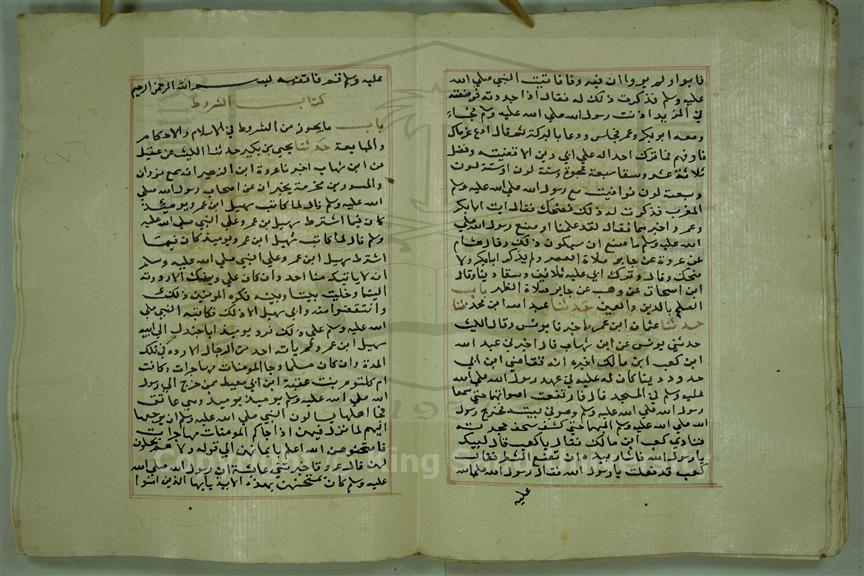 فابوا ولم يروا ان فيه وفا فاتيت النبي صلي الله
عليه وسلم فذكرت ذلك له فقال اذا جددته فوضعته
في المربد اذنت رسول الله صلي الله عليه وسلم فجاء
ومعه ابو بكر وعمر فجلس ودعا بالبركة ثم قال ادع غرماك
فاوفهم فما تركت احدا له علي ابي دين الا قضيته وفضل
ثلاثة عشر وسقا سبعة عجوة وستة لون او ستة لون
وسبعة لون فوافيت مع رسول الله صلي الله عليه وسلم
المغرب فذكرت له ذلك فضحك فقال ايت ابا بكر
وعمر واخبرهما فقال لقد علمنا اذ صنع رسول الله صلي
الله عليه وسلم ما صنع ان سيكون ذلك وقال هشام
عن عروة عن جابر صلاة العصر ولم يذكر ابا بكر ولا
ضحك وقال وترك ابي عليه ثلاثين وسقا دينا وقال
ابن اسحاق عن وهب عن جابر صلاة الظهر باب
الصلح بالدين والعين حدثنا عبد الله ابن محمد نا
حدثنا عثمان ابن عمر اخبرنا يونس وقال الليث
حدثني يونس عن ابن شهاب قال اخبرني عبد الله
ابن كعب ابن مالك اخبره انه تقاضي ابن ابي
حدرد دينا كان له عليه في عهد رسول الله صلي الله
عليه وسلم في المسجد قال فارتفعت اصواتهما حتي سمعها
رسول الله صلي الله عليه وسلم وهو في بيته فخرج رسول
الله صلي الله عليه وسلم اليهما حتي كشف سجف حجرته
فنادي كعب ابن مالك فقال يا كعب قال لبيك
يا رسول الله فاشار بيده ان تضع الشطر فقال
كعب قد فعلت يا رسول الله فقال رسول الله صلي الله
عليه
عليه وسلم قم فاقضه بسم الله الرحمن الرحيم
كتاب الشروط
باب ما يجوز من الشروط في الاسلام والاحكام
والمبايعة حدثنا يحيي بن بكير حدثنا الليث عن عقيل
عن ابن شهاب اخبرنا عروة ابن الزبير انه سمع مروان
والمسور بن مخرمة يخبران عن اصحاب رسول الله صلي
الله عليه وسلم قال لما كاتب سهيل ابن عمرو يوميذ
كان فيما اشترط سهيل ابن عمرو علي النبي صلي الله عليه
وسلم قال لما كاتب سهيل ابن عمرو يوميذ كان فيما
اشترط سهيل ابن عمرو علي النبي صلي الله عليه وسلم
ان لا ياتيك منا احد وان كان علي دينك الا رددته
الينا وخليت بيننا وبينه فكره المومنين ذلك
وامتعضوا منه وابي سهيل الا ذلك فكاتبه النبي صلي
الله عليه وسلم علي ذلك فرد يوميذ ابا جندل الي ابيه
سهيل ابن عمرو ولم ياته احد من الرجال الا رده في تلك
المدة وان كان مسلما وجا المومنات مهاجرات وكانت
ام كلثوم بنت عقبة ابن ابي معيط ممن خرج الي رسول
الله صلي الله عليه وسلم يوميذ وهي عاتق
فجا اهلها يسالون النبي صلي الله عليه وسلم ان يرجعها
اليهم لما نزل فيهن اذا جاكم المومنات مهاجرات
فامتحنوهن الله اعلم بايمانهن الي قوله ولا هم يحلون
لهن قال عروة فاخبرتني عائشة ان رسول الله صلي الله
عليه وسلم كان يمتحنهن بهذه الاية يايها الذين امنوا